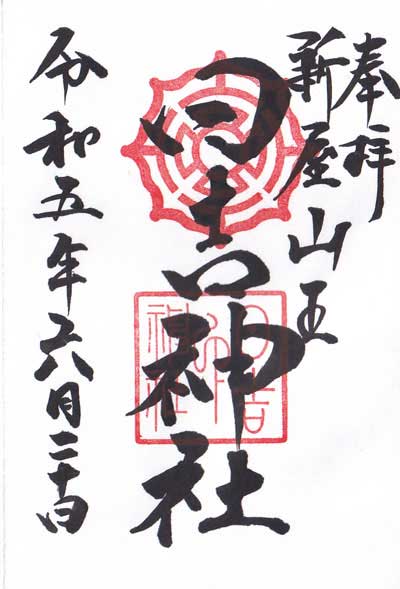 奉拝
新屋山王
日吉神社
令和五年六月二十日
日吉神社